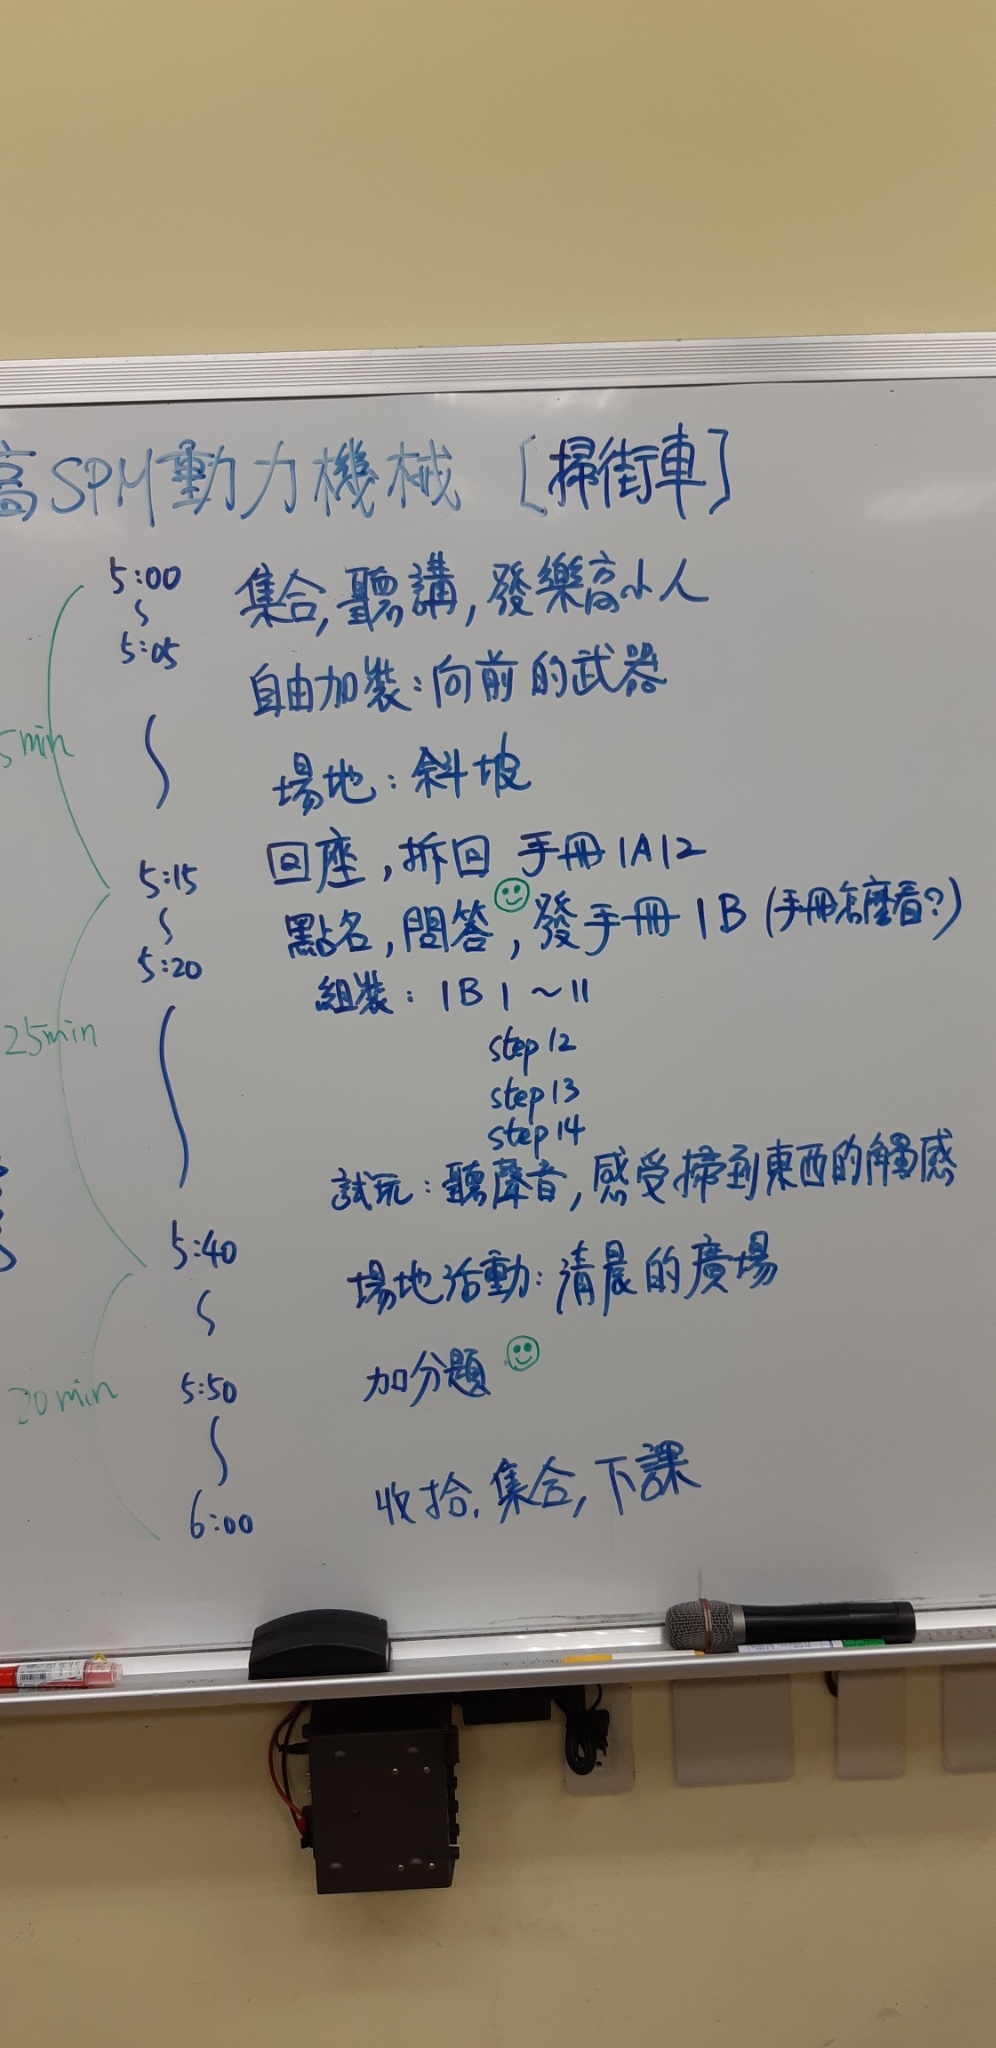 高SPM動力機械 [掃街車]
5:00
5:05
集合, 聽講, 發樂高小人
自由加裝：向前的武器
5min
場地：斜坡
5:15
回座, 拆回 手冊1A12
5:20
點名, 問答, 發手冊1B (手冊怎麼看?)
組裝：1B 1～11
25min
step12
step13
step14
試玩：聽聲音, 感受掃到東西的觸感
5:40
場地活動：清晨的廣場
5:50
加分題
20min
6:00
收拾, 集合, 下課